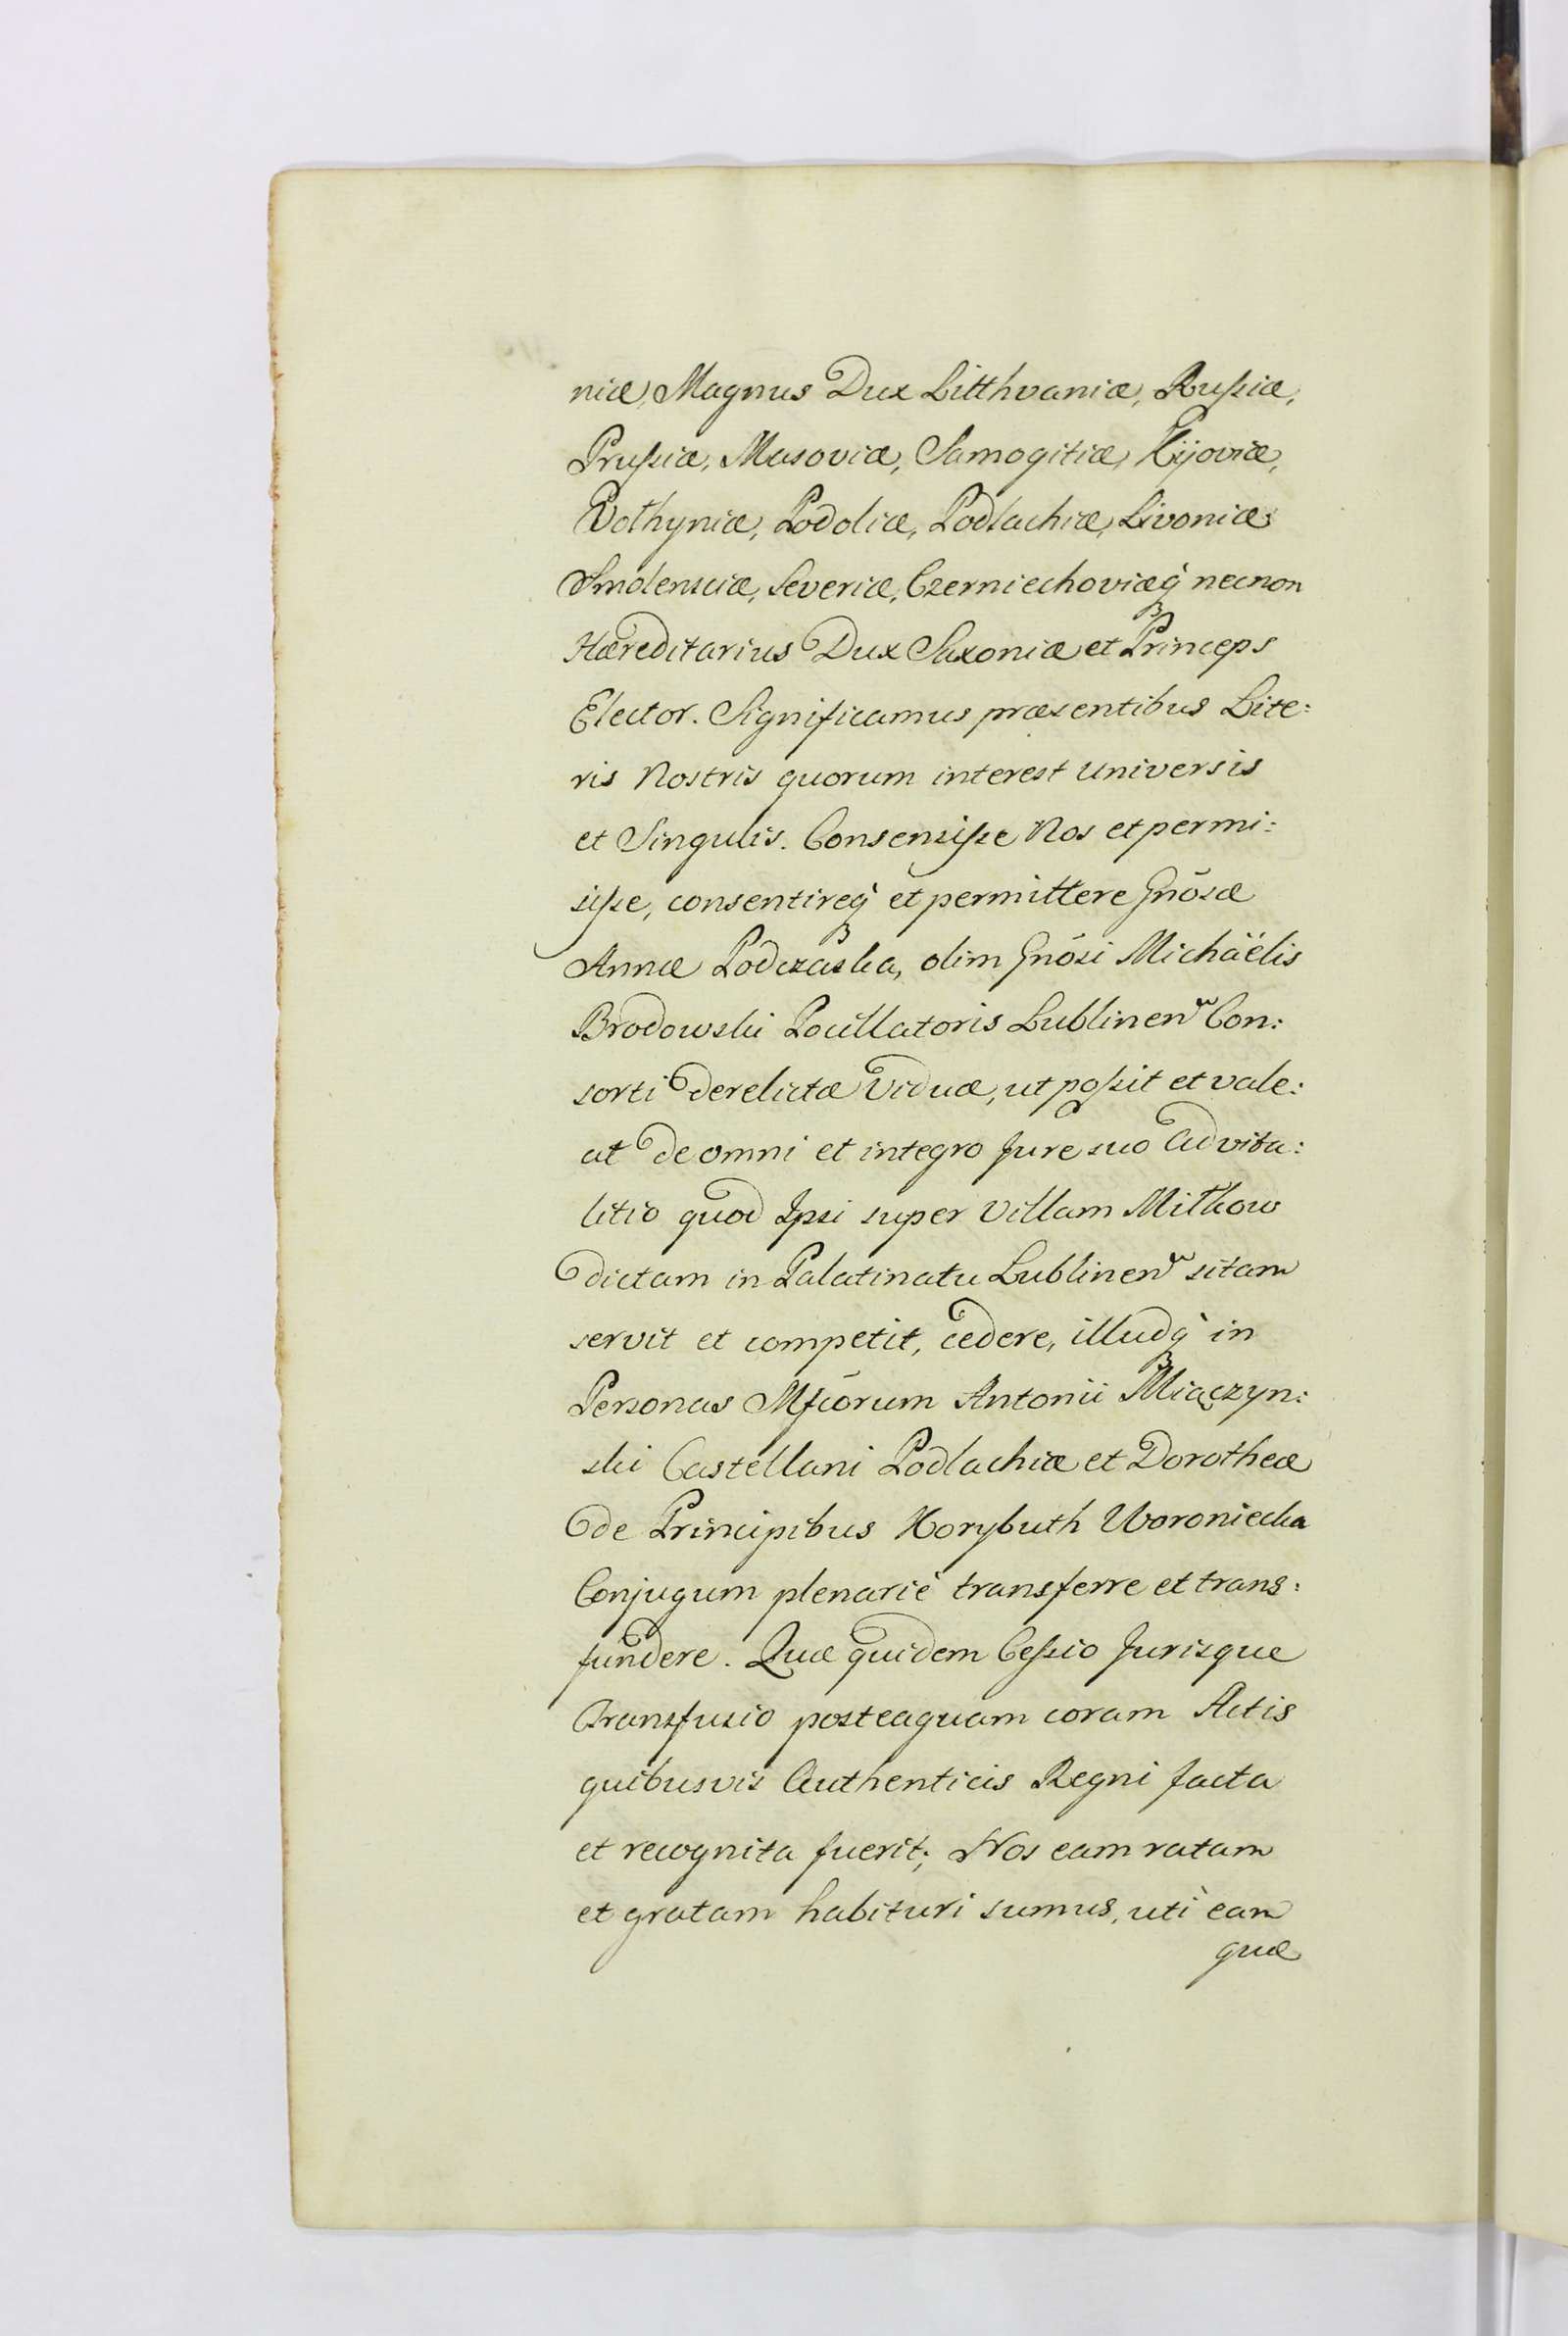 niæ, Magnus Dux Litthvaniæ, Russiæ,
Prussiæ, Masoviæ, Samogitiæ, Kijoviæ,
Volhyniæ, Podoliæ, Podlachiæ, Livoniæ,
Smolensciæ, Severiæ, Czerniechoviæq̀ necnon
Hæreditarius Dux Saxoniæ et Princeps
Elector. Significamus præsentibus Lite:
ris Nostris quorum interest universis
et Singulis. Consensisse Nos et permi:
sisse, consentireq̀ et permittere Gnõsæ
Annæ Podczaska, olim Gnõsi Michäelis
Brodowski Pocillatoris Lublinen̄ Con:
sorti derelictæ Viduæ, ut possit et vale:
at de omni et integro Jure suo Advita:
litio quod Ipsi super Villam Miłkow
dictam in Palatinatu Lublinen̄ sitam
servit et competit, cedere, illudq̀ in
Personas Mfcõrum Antonii Miączyn:
ski Castellani Podlachiæ et Dorotheæ
de Principibus Korybuth Woroniecka
Conjugum plenariè transferre et trans:
fundere. Quæ quidem Cessio Jurisque
transfusio posteaquam coram Actis
quibusvis Authenticis Regni facta
et recognita fuerit; Nos eam ratam
et gratam habituri sumus, utì eam
quæ